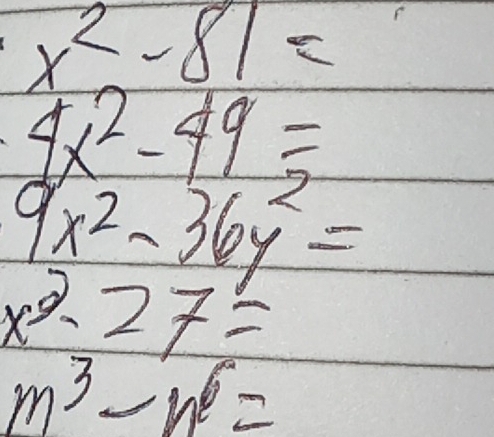 x² - 81 =
4x² - 49 =
9x² - 36y² =
x³ - 27 =
m³ - n⁶ =